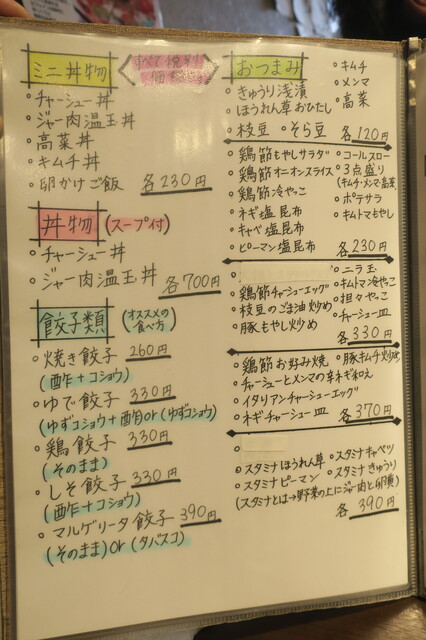 ミニ丼物
すべて
・チャーシュー丼
・ジャー肉温玉丼
・高菜丼
・キムチ丼
・卵かけご飯 各230円
丼物 (スープ付)
・チャーシュー丼
・ジャー肉温玉丼 各700円
餃子類 (オススメの食べ方)
・焼き餃子 260円
(酢+コショウ)
・ゆで餃子 330円
(ゆずコショウ+酢 or (ゆずコショウ)
・鶏餃子 330円
(そのまま)
・しそ餃子 330円
(酢+コショウ)
・マルゲリータ餃子 390円
(そのまま) or (タバスコ)
おつまみ
・きゅうり浅漬 ・キムチ
・ほうれん草おひたし ・メンマ
・枝豆 ・そら豆 ・高菜
各120円
・鶏節もやしサラダ ・コールスロー
・鶏節オニオンスライス ・3点盛り
・鶏節冷やっこ (キムチ・メンマ・高菜)
・ネギ塩昆布 ・ポテサラ
・キャベ塩昆布 ・キムトマもやし
・ピーマン塩昆布 各230円
・ニラ玉
・鶏節チャーシューエッグ ・キムトマ冷やっこ
・枝豆のごま油炒め ・担々やっこ
・豚もやし炒め ・チャーシュー皿
各330円
・鶏節お好み焼 ・豚キムチ炒め
・チャーシューとメンマの辛ネギ和え
・イタリアンチャーシューエッグ
・ネギチャーシュー皿 各370円
・スタミナほうれん草 ・スタミナキャベツ
・スタミナピーマン ・スタミナきゅうり
(スタミナとは→野菜の上にジャー肉と卵黄)
各390円